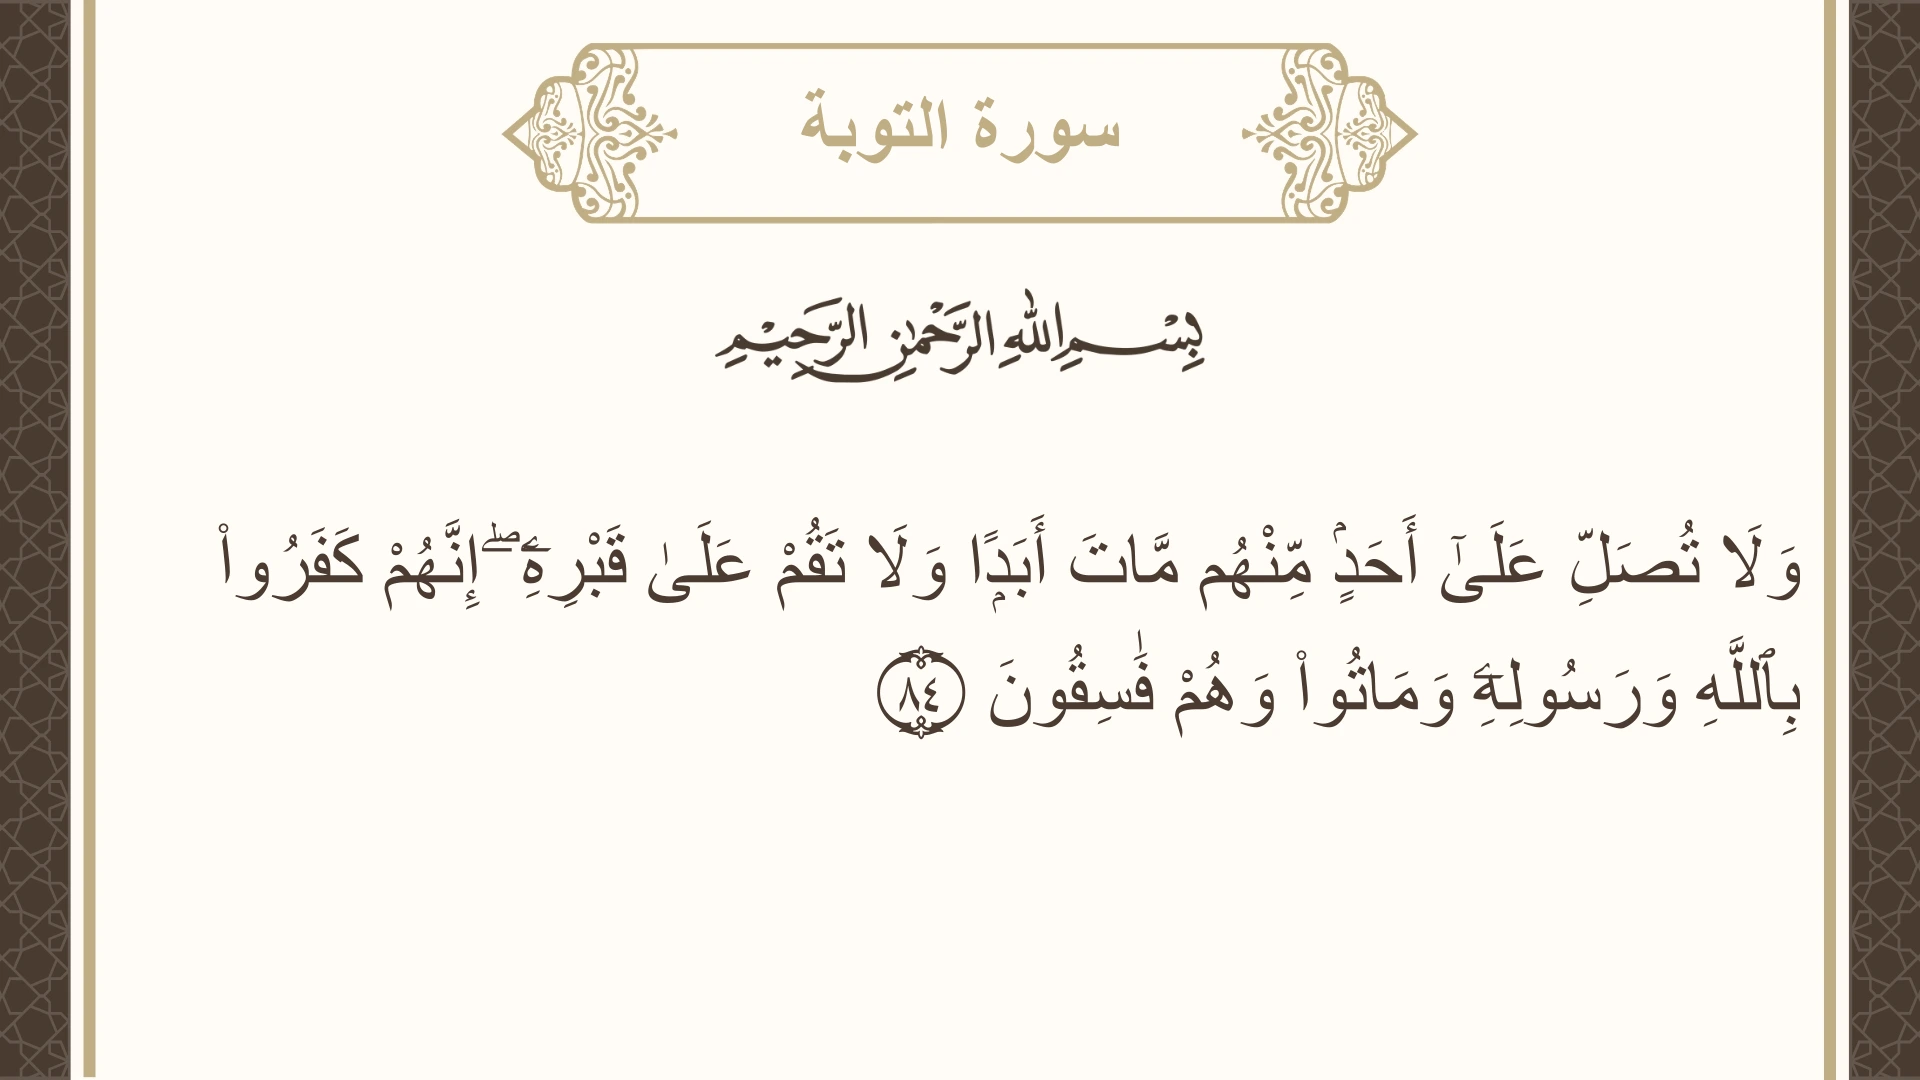 سورة التوبة
بِسْمِ اللهِ الرَّحْمٰنِ الرَّحِيْمِ
وَلَا تُصَلِّ عَلَىٰٓ أَحَدٖ مِّنْهُم مَّاتَ أَبَدٗا وَلَا تَقُمْ عَلَىٰ قَبْرِهِۦٓۖ إِنَّهُمْ كَفَرُوا۟
بِٱللَّهِ وَرَسُولِهِۦ وَمَاتُوا۟ وَهُمْ فَٰسِقُونَ ٨٤